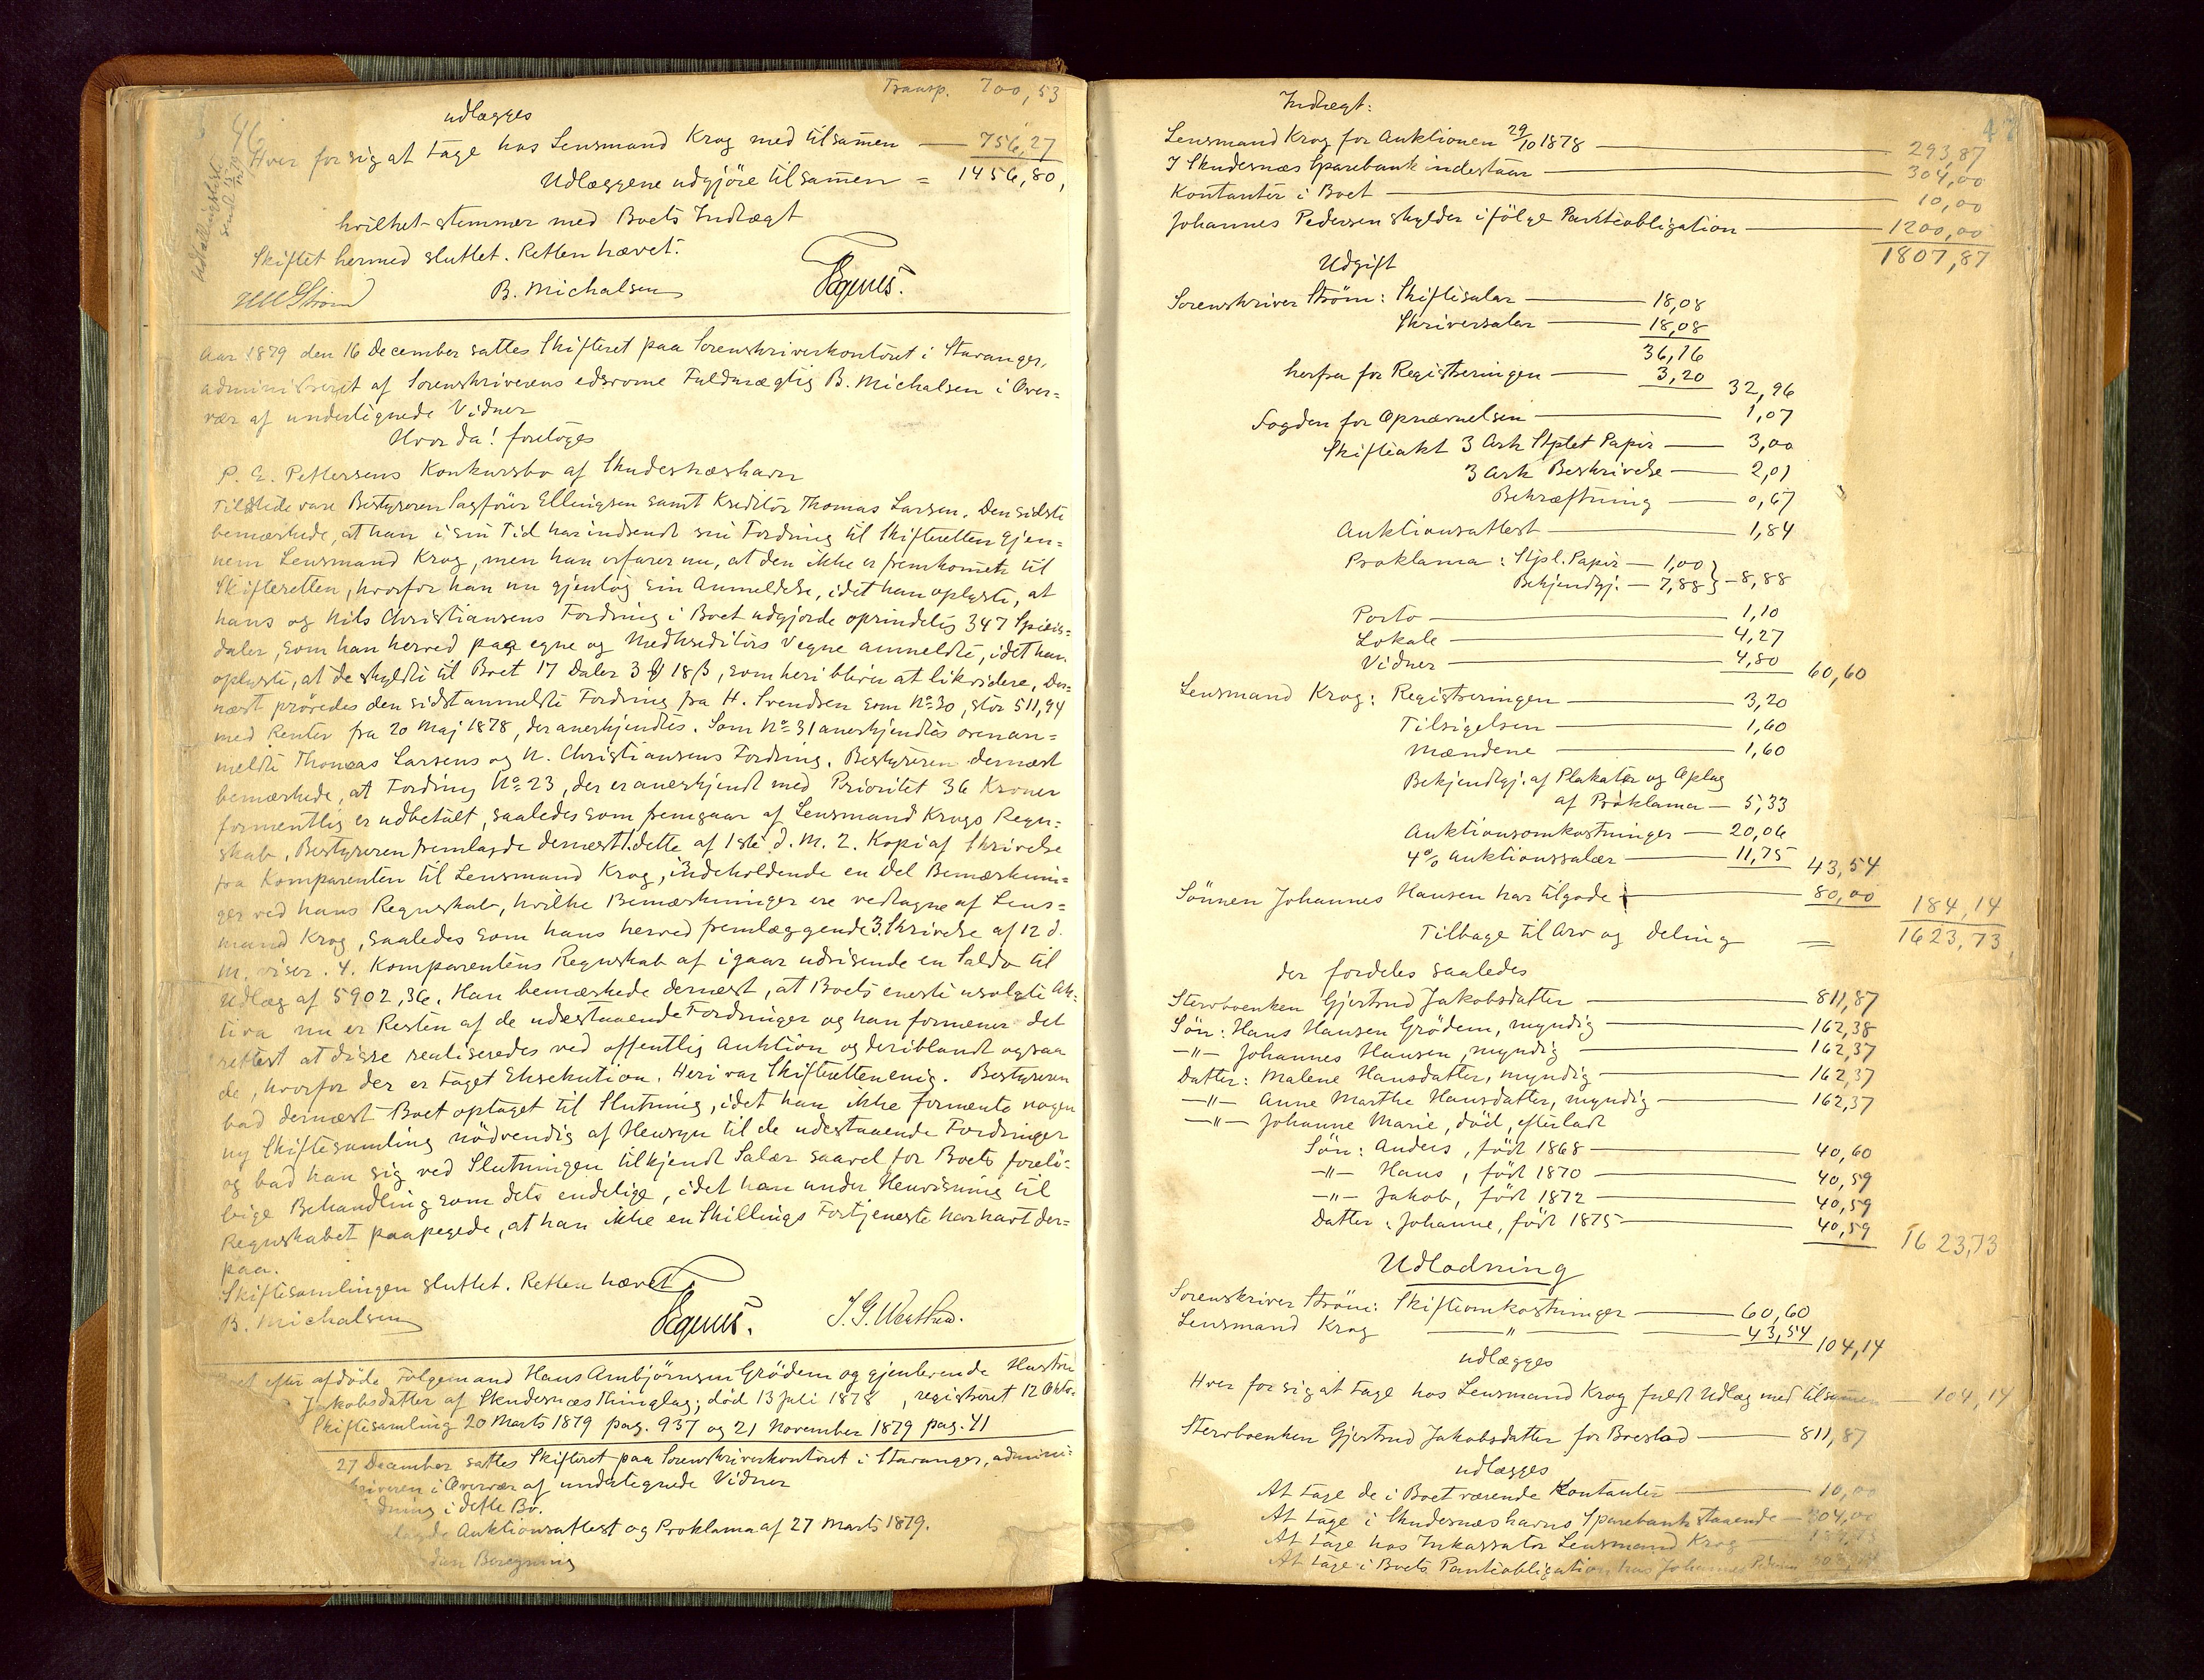 46
Udlodningsliste
sendt
Transp. 700,53
udlægges
Hver for sig at tage hos Lensmand Krog med tilsamen — 756,27
Udlæggene udgjöre tilsamen = 1456,80,
hvilket stemmer med Boets Indtægt
Skiftet hermed sluttet. Retten hævet.
B. Michalsen
Aar 1879 den 16 December sattes Skifteret paa Sorenskriverkontoret i Stavanger,
administreret af Sorenskriverens edsvorne Fuldmægtig B. Michalsen i Over=
vær af undertegnede Vidner
Hvor da! foretoges
P. E. Pettersens Konkursbo af Skudesnæshavn
Tilstede vare Bestyreren Sagförer Ellingsen samt Kreditor Thomas Larsen. Den sidste
bemærkede, at han i sin Tid har indsendt sin Fordring til Skifteretten gjen=
nem Lensmand Krog, men han erfarer nu, at den ikke er fremkommet til
Skifteretten, hvorfor han nu gjentog sin Anmeldelse, idet han oplyste, at
hans og Nils Christiansens Fordring i Boet udgjorde oprindelig 347 Specis=
daler, som han herved paa egne og Medkreditors Vegne anmeldte, idet han
oplyste, at de skyldte til Boet 17 Daler 3 ℔ 18 β, som heri bliver at likvidere. Der=
næst prövedes den sidst anmeldte Fordring fra H. Svendsen som No 30, stor 511,94
med Renter fra 20 Maj 1878, der anerkjendtes. Som No 31 anerkjendtes ovenan=
meldte Thomas Larsens og N. Christiansens Fordring. Bestyreren dernæst
bemærkede, at Fordring No 23, der er anerkjendt med Prioritet 36 Kroner
formentlig er udbetalt, saaledes som fremgaar af Lensmand Krogs Regn=
skab. Bestyreren fremlagde dernæst 1. dette af 1ste d. M. 2. Kopi af Skrivelse
fra Komparenten til Lensmand Krog, indeholdende en Del Bemærknin=
ger ved hans Regnskab, hvilke Bemærkninger ere vedtagne af Lens=
mand Krog, saaledes som hans herved fremlæggende 3. Skrivelse af 12 d.
M. viser. 4. Komparentens Regnskab af igaar udvisende en Saldo til
Udlæg af 5902,36. Han bemærkede dernæst, at Boets eneste usolgte Ak=
tiva nu er Resten af de udestaaende Fordringer og han formener det
rettest at disse realiseredes ved offentlig Auktion og deriblandt ogsaa
de, hvorfor der er taget Eksekution. Heri var Skifteretten enig. Bestyreren
bad dernæst Boet optaget til Slutning, idet han ikke formente nogen
ny Skiftesamling nödvendig af Hensyn til de udestaaende Fordringer
og bad han sig ved Slutningen tilkjendt Salær saavel for Boets forelö=
bige Behandling som dets endelige, idet han under Henvisning til
Regnskabet paapegede, at han ikke en Skillings Fortjeneste har havt der=
paa.
Skiftesamlingen sluttet. Retten hævet.
B. Michalsen
Boet efter afdöde Folgemand Hans Arnbjörnsen Grödem og gjenlevende Hustru
Jakobsdatter af Skudesnæs Thinglag; död 13 Juli 1878, registreret 12 Okto.
Skiftesamling 20 Marts 1879 pag. 937 og 21 November 1879 pag. 41
27 December sattes Skifteret paa Sorenskriverkontoret i Stavanger, admini=
i Overvær af undertegnede Vidner
i dette Bo.
Auktionsattest og Proklama af 27 Marts 1879.
Beregning
47
Indtægt:
Lensmand Krog for Auktionen 29/10 1878 — 293,87
I Skudesnæs Sparebank indestaar — 304,00
Kontanter i Boet — 10,00
Johannes Pedersen skylder i fölge Panteobligation — 1200,00
1807,87
Udgift
Sorenskriver Ström: Skiftesalær — 18,08
Skriversalær — 18,08
36,16
herfra for Registreringen — 3,20 32,96
Fogden for Opnævnelsen — 1,07
Skifteakt 3 Ark Stplet Papir — 3,00
3 Ark Beskrivelse — 2,01
Bekræftning — 0,67
Auktionsattest — 1,84
Proklama: Stpl. Papir — 1,00
Bekjendtgj. — 7,88 } — 8,88
Porto — 1,10
Lokale — 4,27
Vidner — 4,80 60,60
Lensmand Krog: Registreringen — 3,20
Tilsigelsen — 1,60
Mændene — 1,60
Bekjendtgj. af Plakater og Oplag
af Proklama — 5,33
Auktionsomkostninger — 20,06
4% Auktionssalær — 11,75 43,54
Sönnen Johannes Hansen har tilgode — 80,00 184,14
Tilbage til Arv og deling = 1623,73
der fordeles saaledes
Stervboenken Gjertrud Jakobsdatter — 811,87
Sön: Hans Hansen Grödem, myndig — 162,38
—"— Johannes Hansen, myndig — 162,37
Datter: Malene Hansdatter, myndig — 162,37
—"— Anne Marthe Hansdatter, myndig — 162,37
—"— Johanne Marie, död, efterladt
Sön: Anders, födt 1868 — 40,60
—"— Hans, födt 1870 — 40,59
—"— Jakob, födt 1872 — 40,59
Datter: Johanne, födt 1875 — 40,59 1623,73
Udlodning
Sorenskriver Ström: Skifteomkostninger — 60,60
Lensmand Krog — " — 43,54 104,14
udlægges
Hver for sig at tage hos Lensmand Krog fuldt Udlæg med tilsamen — 104,14
Stervboenken Gjertrud Jakobsdatter for Boeslod — 811,87
udlægges
At tage de i Boet værende Kontanter — 10,00
At tage i Skudesnæshavns Sparebank staaende — 304,00
At tage hos Inkassator Lensmand Krog
At tage i Boets Panteobligation hos Johannes